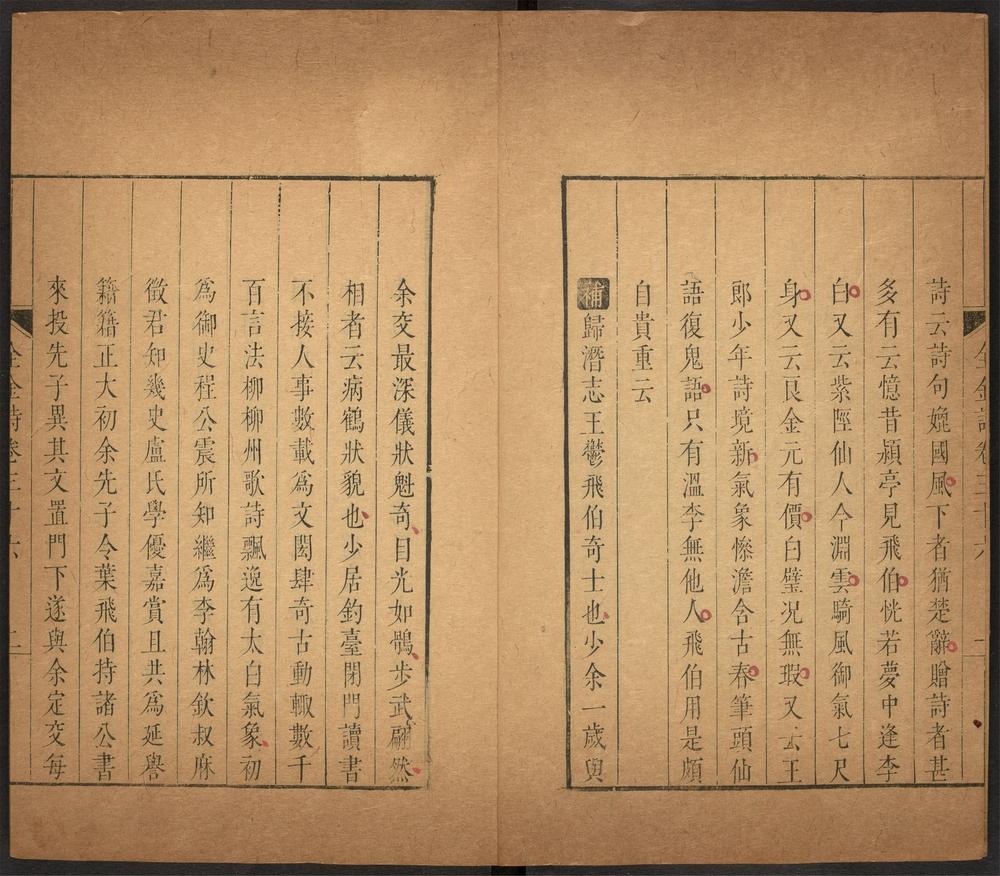 全金詩卷三十六
詩云詩句媲國風下者猶楚辭贈詩者甚
多有云憶昔潁亭見飛伯恍若夢中逢李
白又云紫陘仙人今淵雲騎風御氣七尺
身又云良金元有價白璧況無瑕又云王
郎少年詩境新氣象慘澹含古春筆頭仙
語復鬼語只有溫李無他人飛伯用是頗
自貴重云
補歸潛志王鬱飛伯奇士也少余一歲與
余交最深儀狀魁奇目光如鶻步武翩然
相者云病鶴狀貌也少居釣臺閉門讀書
不接人事數載為文閎肆奇古動輒數千
百言法柳柳州歌詩飄逸有太白氣象初
為御史程公震所知繼為李翰林欽叔麻
徵君知幾史盧氏學優嘉賞且共為延譽
籍籍正大初余先子令葉飛伯持諸公書
來投先子異其文置門下遂與余定交每
全金詩卷三十六 二